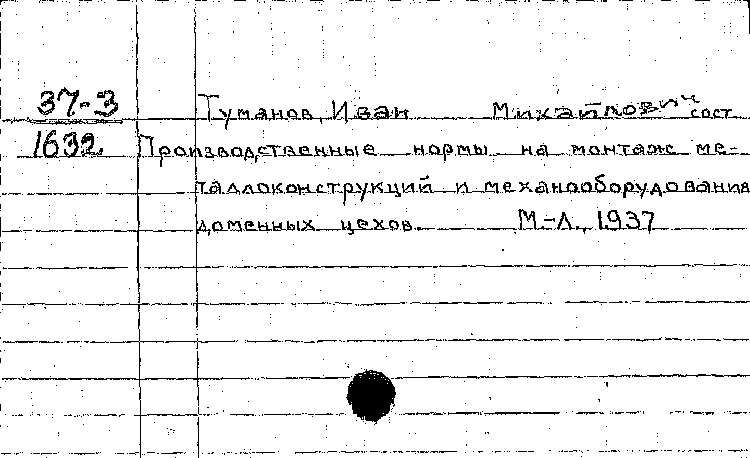 37-3
1632
Туманов, Иван Михайлович сост.
Производственные нормы на монтаж ме-
таллоконструкций и механооборудования
доменных цехов. М.-Л., 1937